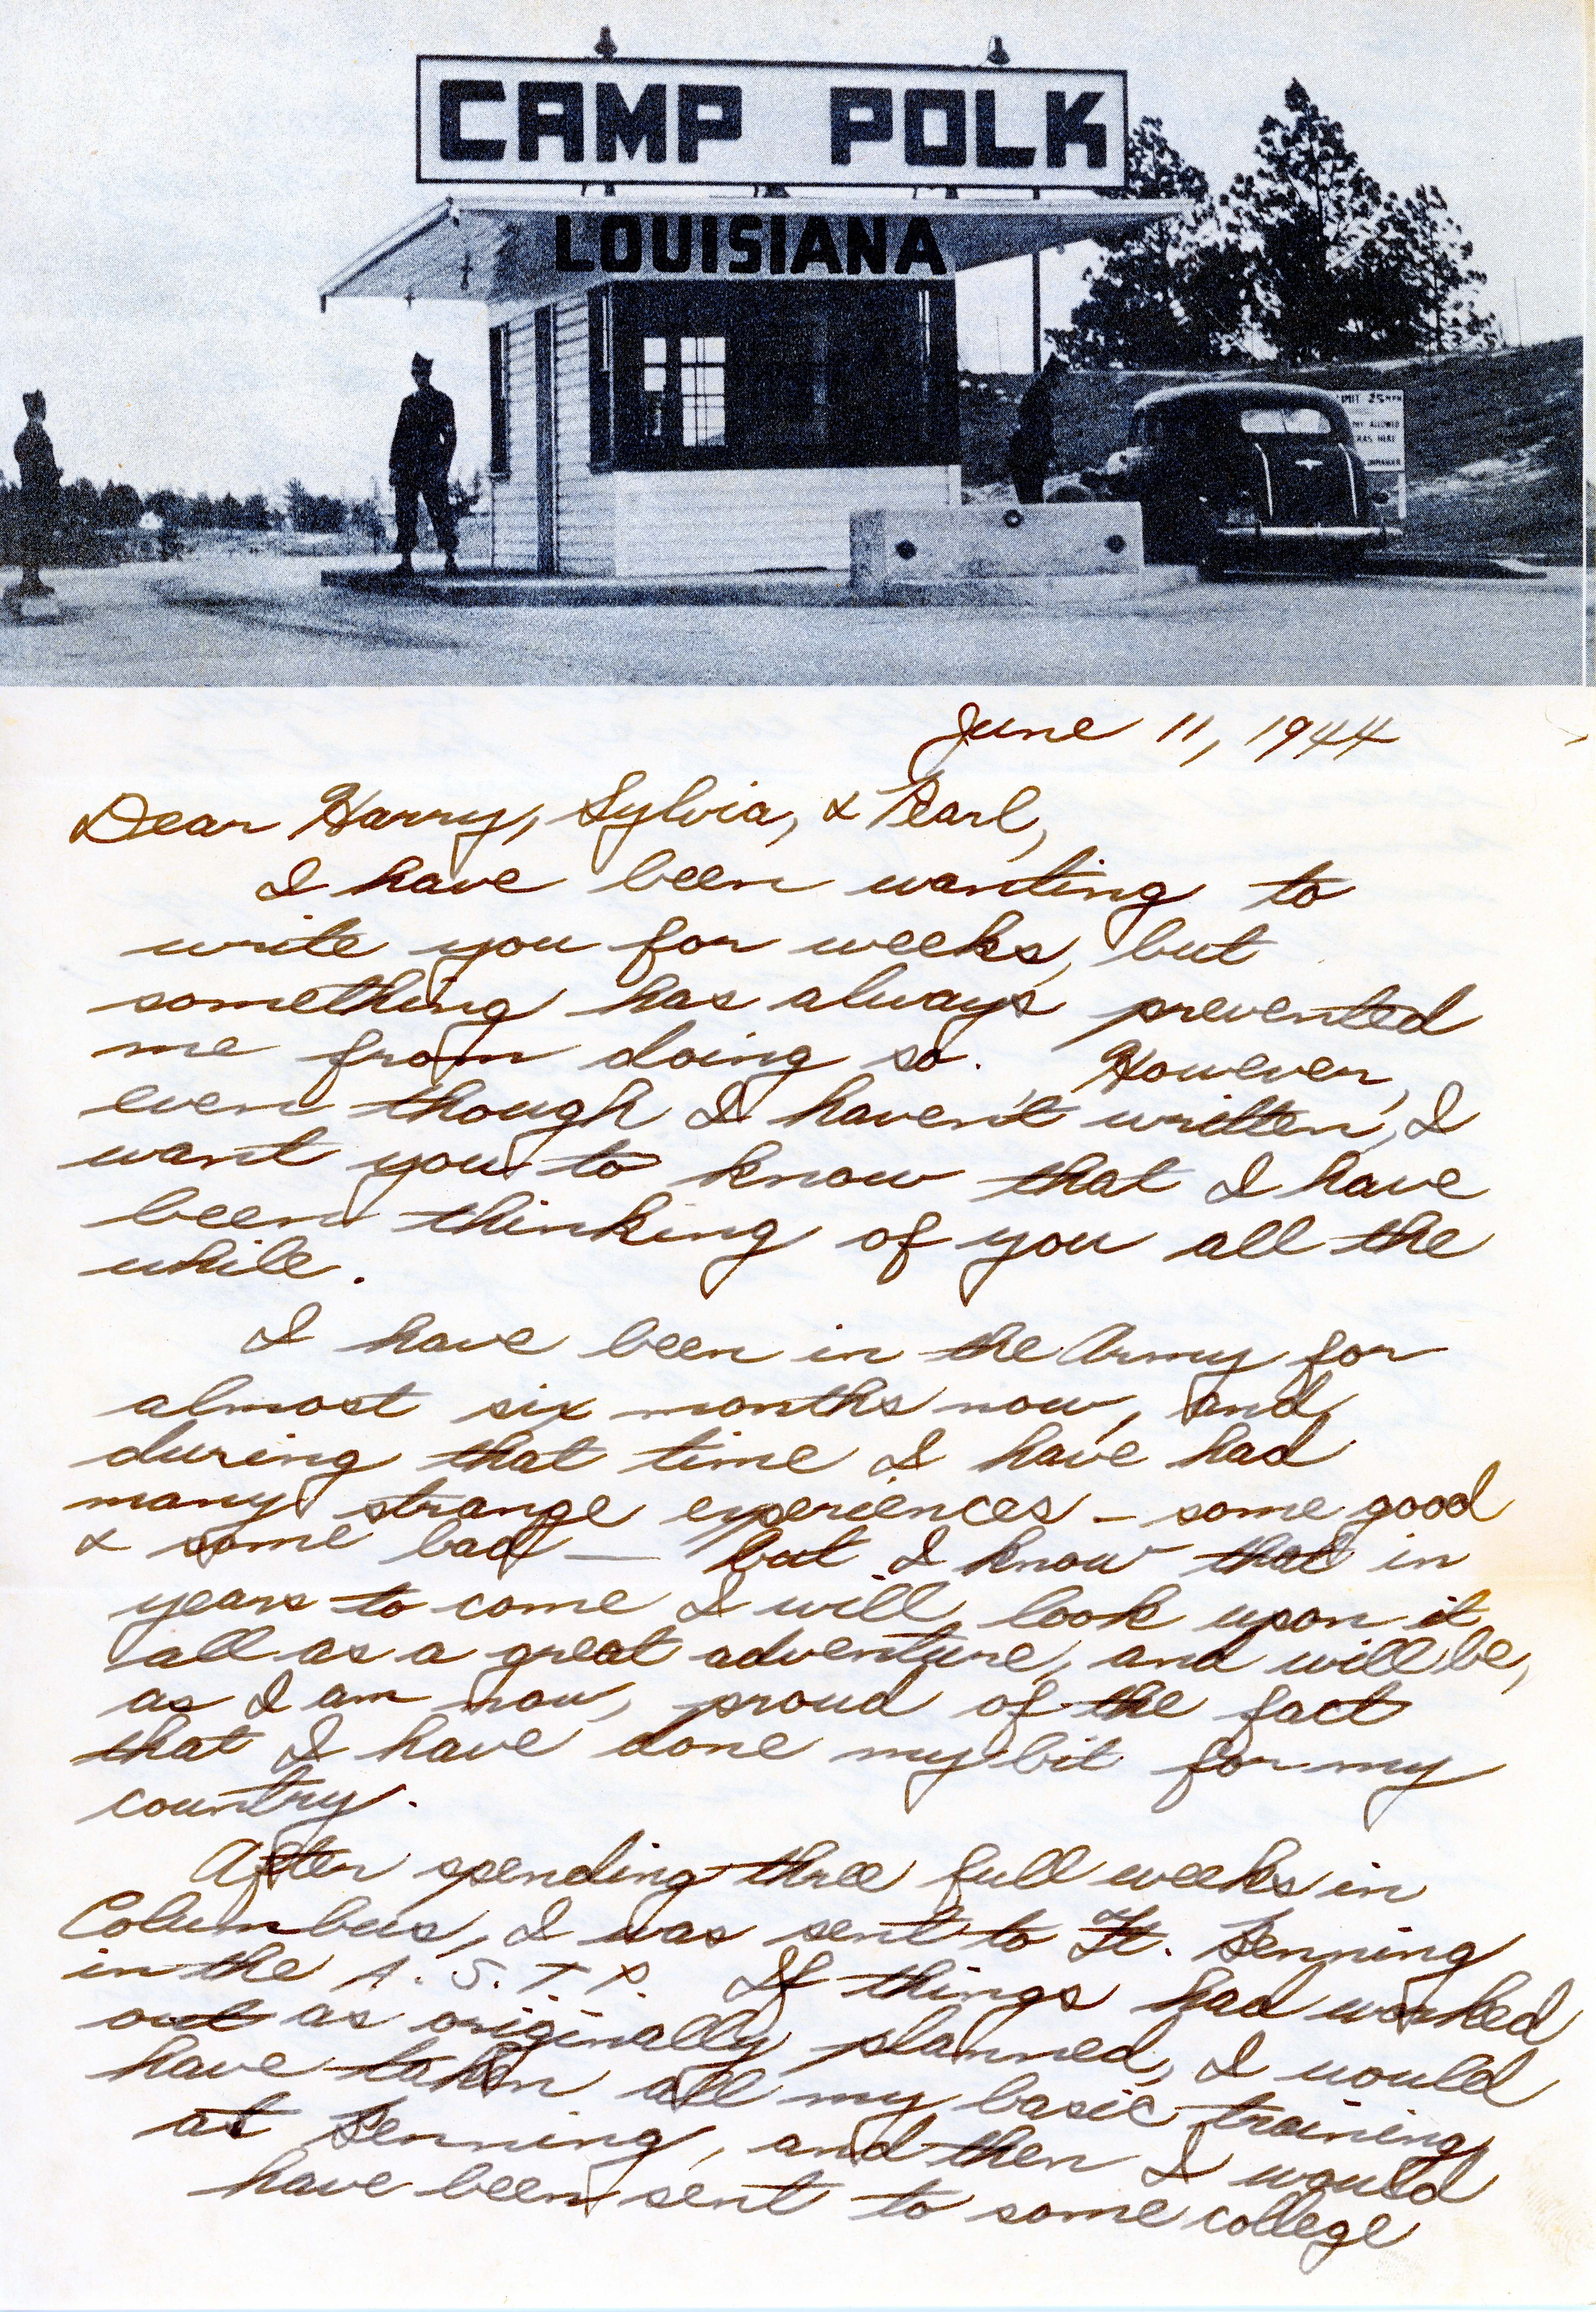 CAMP POLK
LOUISIANA
LIMIT 25 MPH
ALLOWED
HERE
June 11, 1944
Dear Harry, Sylvia, & Pearl,
I have been wanting to
write you for weeks, but
something has always prevented
me from doing so. However,
even though I haven't written, I
want you to know that I have
been thinking of you all the
while.
I have been in the Army for
almost six months now, and
during that time I have had
many strange experiences - some good
& some bad — but I know that in
years to come I will look upon it
all as a great adventure, and will be,
as I am now, proud of the fact
that I have done my bit for my
country.
After spending three full weeks in
Columbus, I was sent to Ft. Benning
in the A.S.T.P. If things had worked
out as originally planned, I would
have taken all my basic training
at Benning, and then I would
have been sent to some college